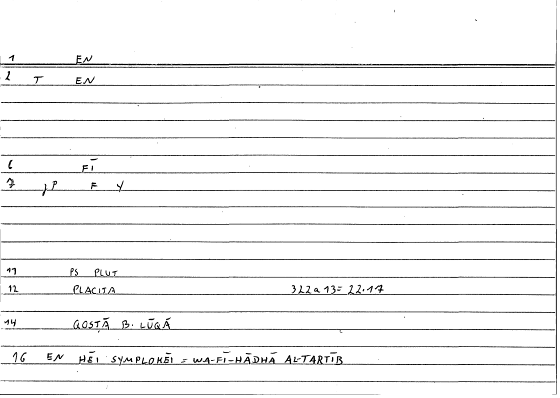 1 EN
2 T EN
6 FĪ
7 , P F Y
11 PS PLUT
12 PLACITA 322a13=22.17
14 QOSṬĀ B. LŪQĀ
16 EN HĒI SYMPLOKĒI = WA-FĪ-HĀDHĀ AL-TARTĪB